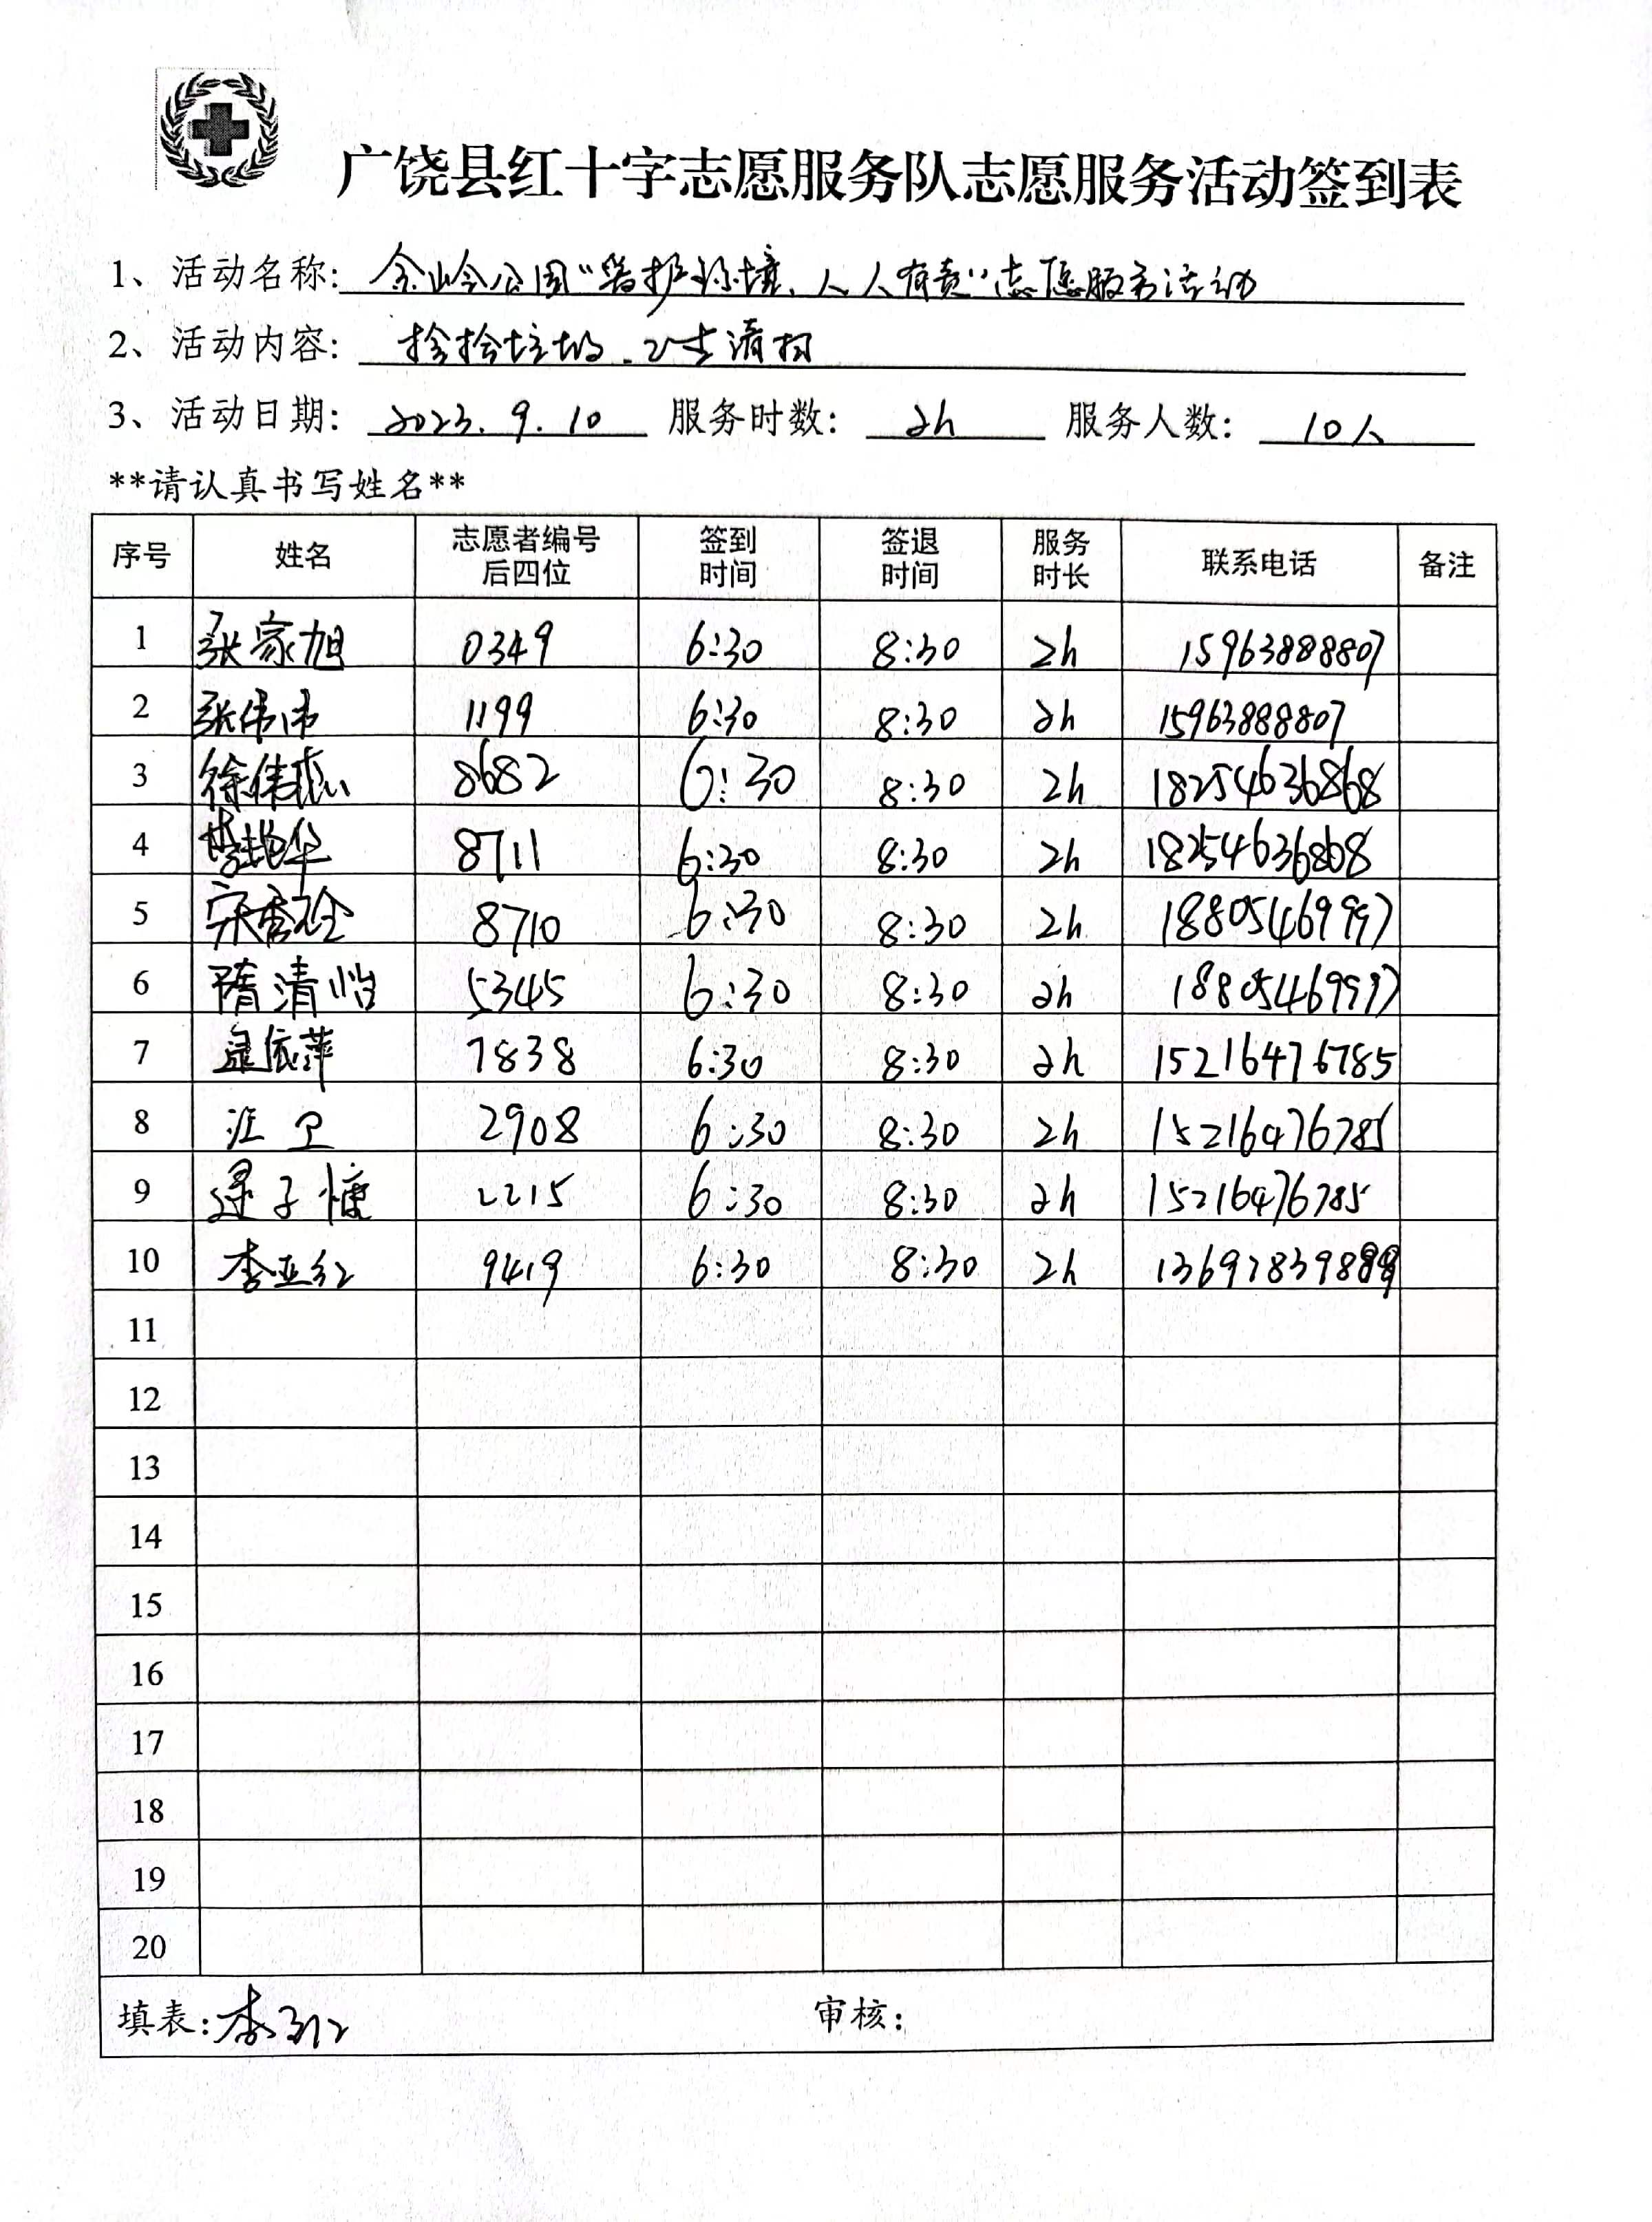 广饶县红十字志愿服务队志愿服务活动签到表
1、活动名称: 金岭公园"爱护环境、人人有责"志愿服务活动
2、活动内容: 捡拾垃圾、卫生清扫
3、活动日期: 2023.9.10 服务时数: 2h 服务人数: 10人
**请认真书写姓名**
序号 姓名 志愿者编号后四位 签到时间 签退时间 服务时长 联系电话 备注
1 张家旭 0349 6:30 8:30 2h 15963888807
2 张伟伟 1199 6:30 8:30 2h 15963888807
3 徐伟 8682 6:30 8:30 2h 18254636868
4 华 8711 6:30 8:30 2h 18254636868
5 宋秀 8710 6:30 8:30 2h 18805469997
6 隋清怡 5345 6:30 8:30 2h 18805469997
7 依萍 7838 6:30 8:30 2h 15216476785
8 江卫 2908 6:30 8:30 2h 15216476785
9 逯子慷 2215 6:30 8:30 2h 15216476785
10 李亚红 9419 6:30 8:30 2h
11
12
13
14
15
16
17
18
19
20
填表: 李亚红 审核: